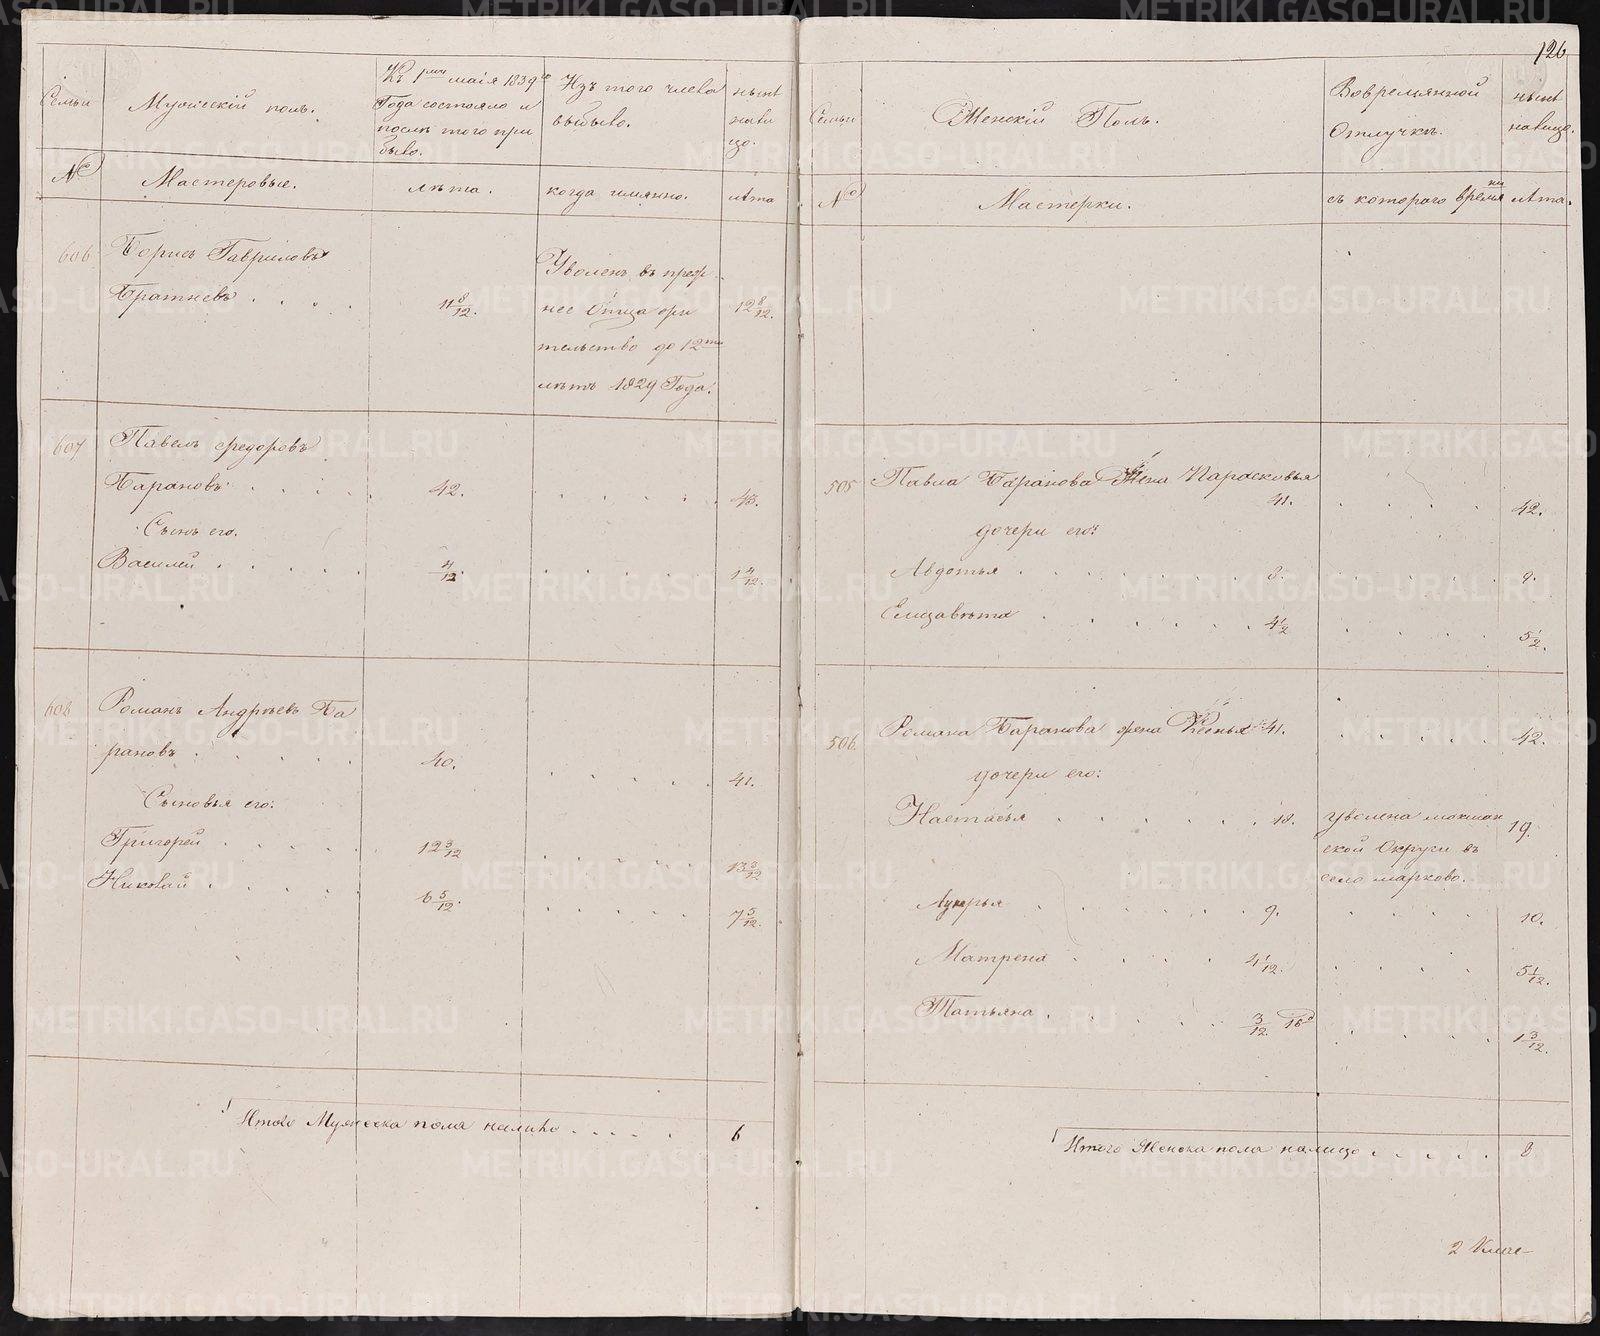 126
Семьи
Мужескій полъ.
Къ 1му маія 1839го
Года состояло и
после того при
было.
Изъ того числа
выбыло.
ныне
нали
цо.
№
Мастеровые.
лета.
когда имянно.
лета
606
Борисъ Гавриловъ
Братневъ . . . .
11 8/12.
Уволенъ въ преж
нее Отца жи
тельство до 12ти
летъ 1829 Года.
12 8/12.
607
Павелъ Федоровъ
Барановъ . . . . .
42.
43.
Сынъ его.
Василей . . . . .
4/12.
1 4/12.
608
Романъ Андреевъ Ба
рановъ . . . . .
40.
41.
Сыновья его:
Григорей . . . . .
12 3/12
13 3/12
Николай . . . . .
6 5/12.
7 5/12.
Итого Мужеска пола налицо . . . . .
6
Семьи
Женскій Полъ.
Вовремянной
Отлучки.
ныне
налицо.
№
Мастерки.
съ котораго времяни
лета.
505
Павла Баранова Жена Парасковья
41.
42.
дочери его:
Авдотья . . . . . . 8.
9.
Елизавета . . . . . . 4 1/2
5 1/2.
506
Романа Баранова жена 41.
42.
дочери его:
Настасья . . . . . . 18.
уволена
ской Округи въ
село марково.
19.
Лукерья . . . . . . 9.
10.
Матрена . . . . 4 1/12.
5 1/12.
Татьяна . . . . . . 3/12.
1 3/12.
Итого Женска пола налицо . . . . .
8
METRIKI.GASO-URAL.RU